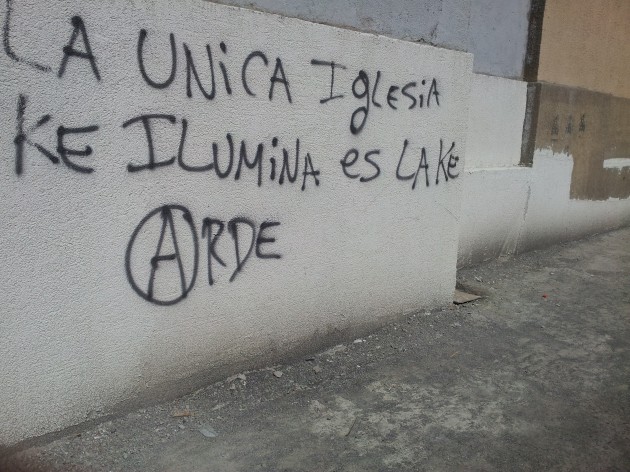 LA UNiCA IgLESiA
KE ILUMiNA es LA KE
ARDE